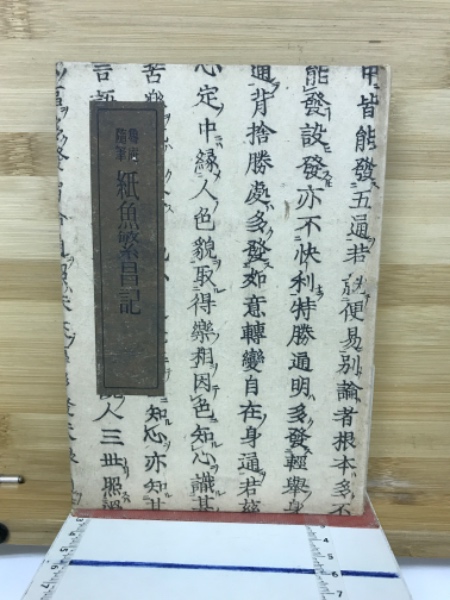 中皆能發五通若能便易別論者根本多不
能發設發亦不快利特勝通明多發輕舉身
通背捨勝處多發如意轉變自在身通若慈
心定中緣人色貌取得樂相因色知心識其
苦樂
知心亦知其
言語
人三世照過
魯庵
隨筆
紙魚繁昌記
4
5
6
7